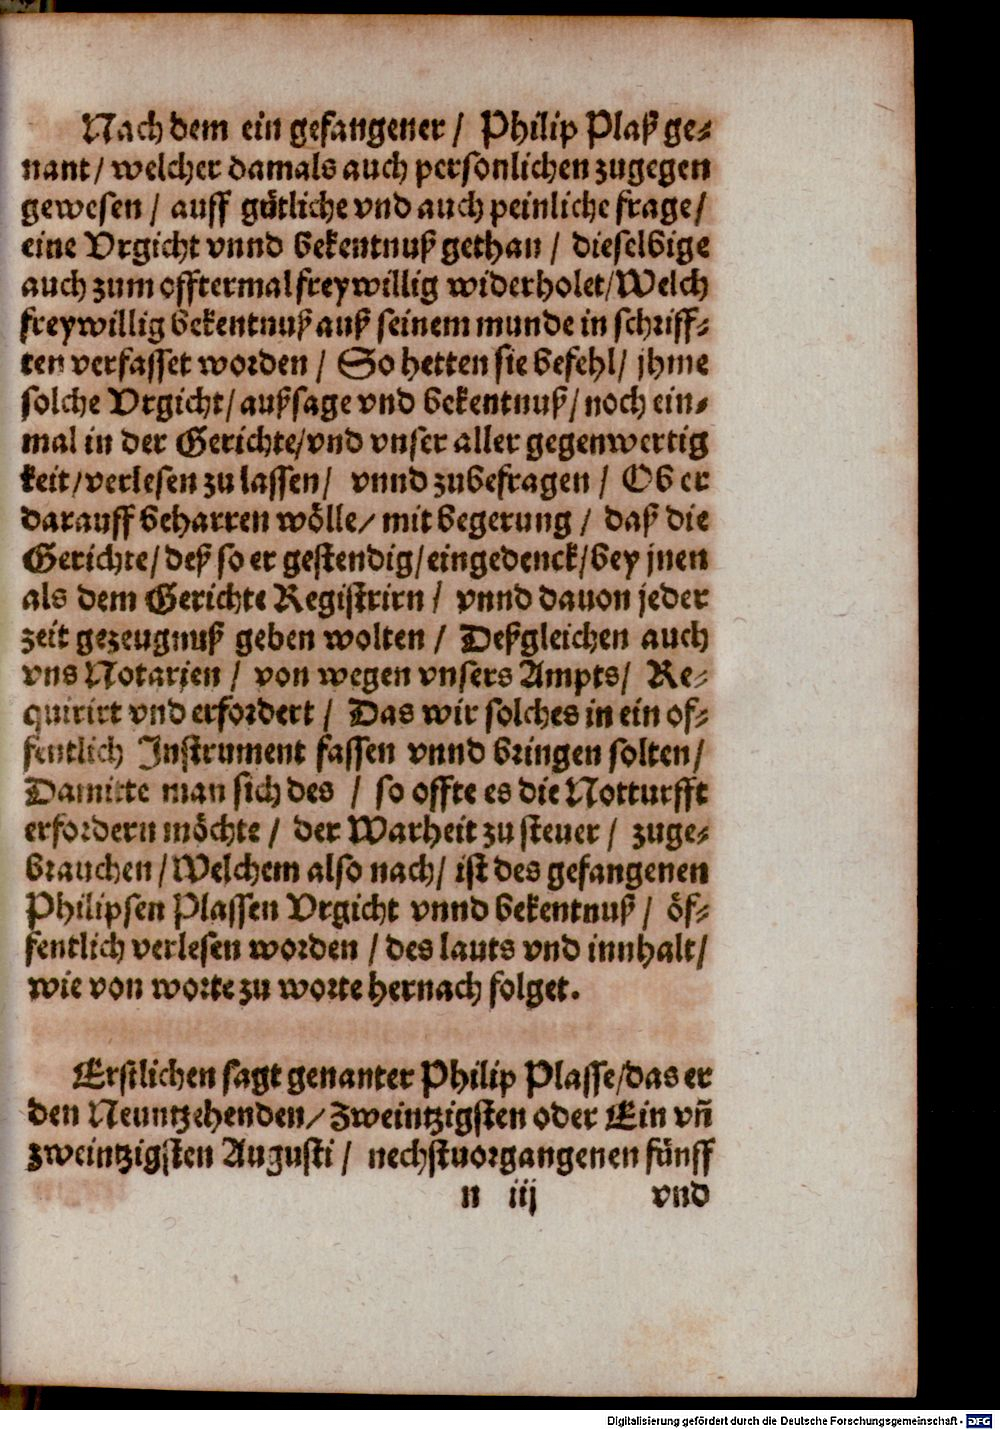 Nach dem ein gefangener / Philip Plaß ge⸗
nant / welcher damals auch personlichen zugegen
gewesen / auff gütliche vnd auch peinliche frage /
eine Vrgicht vnnd bekentnuß gethan / dieselbige
auch zum offtermal freywillig widerholet / Welch
freywillig bekentnuß auß seinem munde in schriff⸗
ten verfasset worden / So hetten sie befehl / jhme
solche Vrgicht / außsage vnd bekentnuß / noch ein⸗
mal in der Gerichte / vnd vnser aller gegenwertig
keit / verlesen zu lassen / vnnd zubefragen / Ob er
darauff beharren wölle / mit begerung / daß die
Gerichte / deß so er gestendig / eingedenck / bey jnen
als dem Gerichte Registrirn / vnnd dauon jeder
zeit gezeugnuß geben wolten / Deßgleichen auch
vns Notarien / von wegen vnsers Ampts / Re⸗
quirirt vnd erfordert / Das wir solches in ein of⸗
fentlich Instrument fassen vnnd bringen solten /
Damitte man sich des / so offte es die Notturfft
erfordern möchte / der Warheit zu steuer / zuge⸗
brauchen / Welchem also nach / ist des gefangenen
Philipsen Plassen Vrgicht vnnd bekentnuß / öf⸗
fentlich verlesen worden / des lauts vnd innhalt /
wie von worte zu worte hernach folget.
Erstlichen sagt genanter Philip Plasse / das er
den Neuntzehenden / Zweintzigsten oder Ein vñ
zweintzigsten Augusti / nechstuorgangenen fünff
n iij vnd
Digitalisierung gefördert durch die Deutsche Forschungsgemeinschaft - DFG